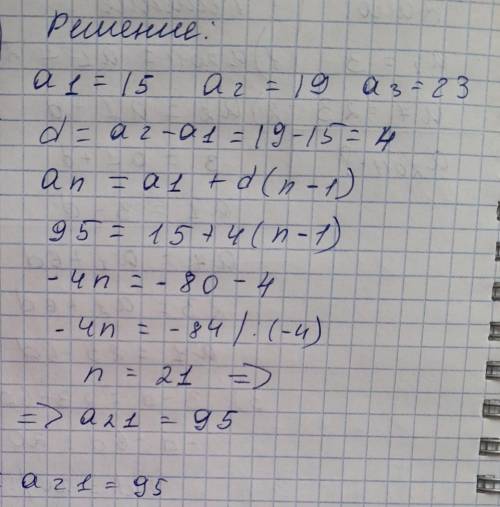 Решение:
a1 = 15 a2 = 19 a3 = 23
d = a2 - a1 = 19 - 15 = 4
an = a1 + d(n - 1)
95 = 15 + 4(n - 1)
-4n = -80 - 4
-4n = -84 / · (-4)
n = 21 =>
=> a21 = 95
a21 = 95